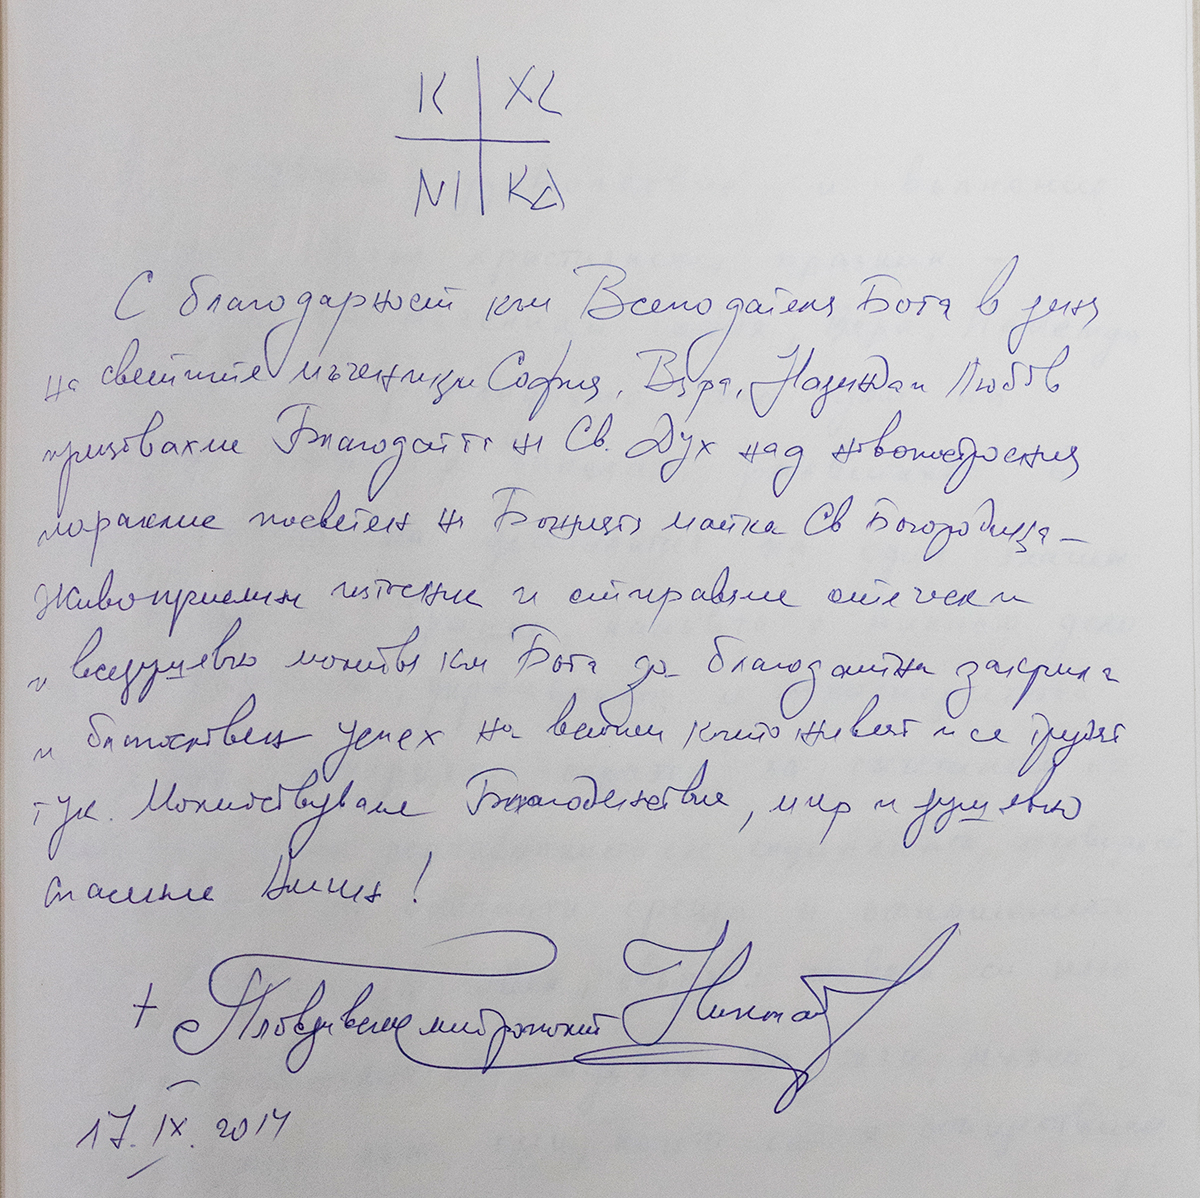 IC XC
NI KA
С благодарност към Всеподателя Бога в деня
на светите мъченици София, Вяра, Надежда и Любов
призовахме Благодатта на Св. Дух над новопостроения
параклис посветен на Божията майка Св Богородица –
Живоприемни източник и отправяме отечески
и вседушевно молитви към Бога за благодатна закрила
и благословен успех на всички които живеят и се трудят
тук. Молитствуваме Благоденствие, мир и душевно
спасение Амин!
+ Пловдивски митрополит Николай
17.IX.2014